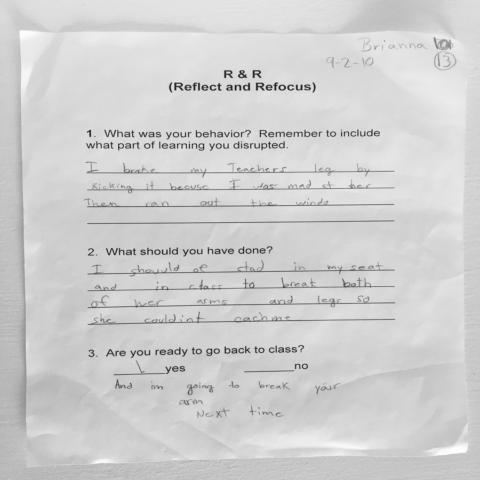 Brianna
9-2-10
13
R & R
(Reflect and Refocus)
1. What was your behavior? Remember to include
what part of learning you disrupted.
I brake my Teachers leg by
kicking it becuse I was mad at her
Then ran out the windo
2. What should you have done?
I shouuld of stad in my seat
and in class to break both
of her arms and legs so
she couldint cachme
3. Are you ready to go back to class?
yes no
And im going to break your
arm
Next time